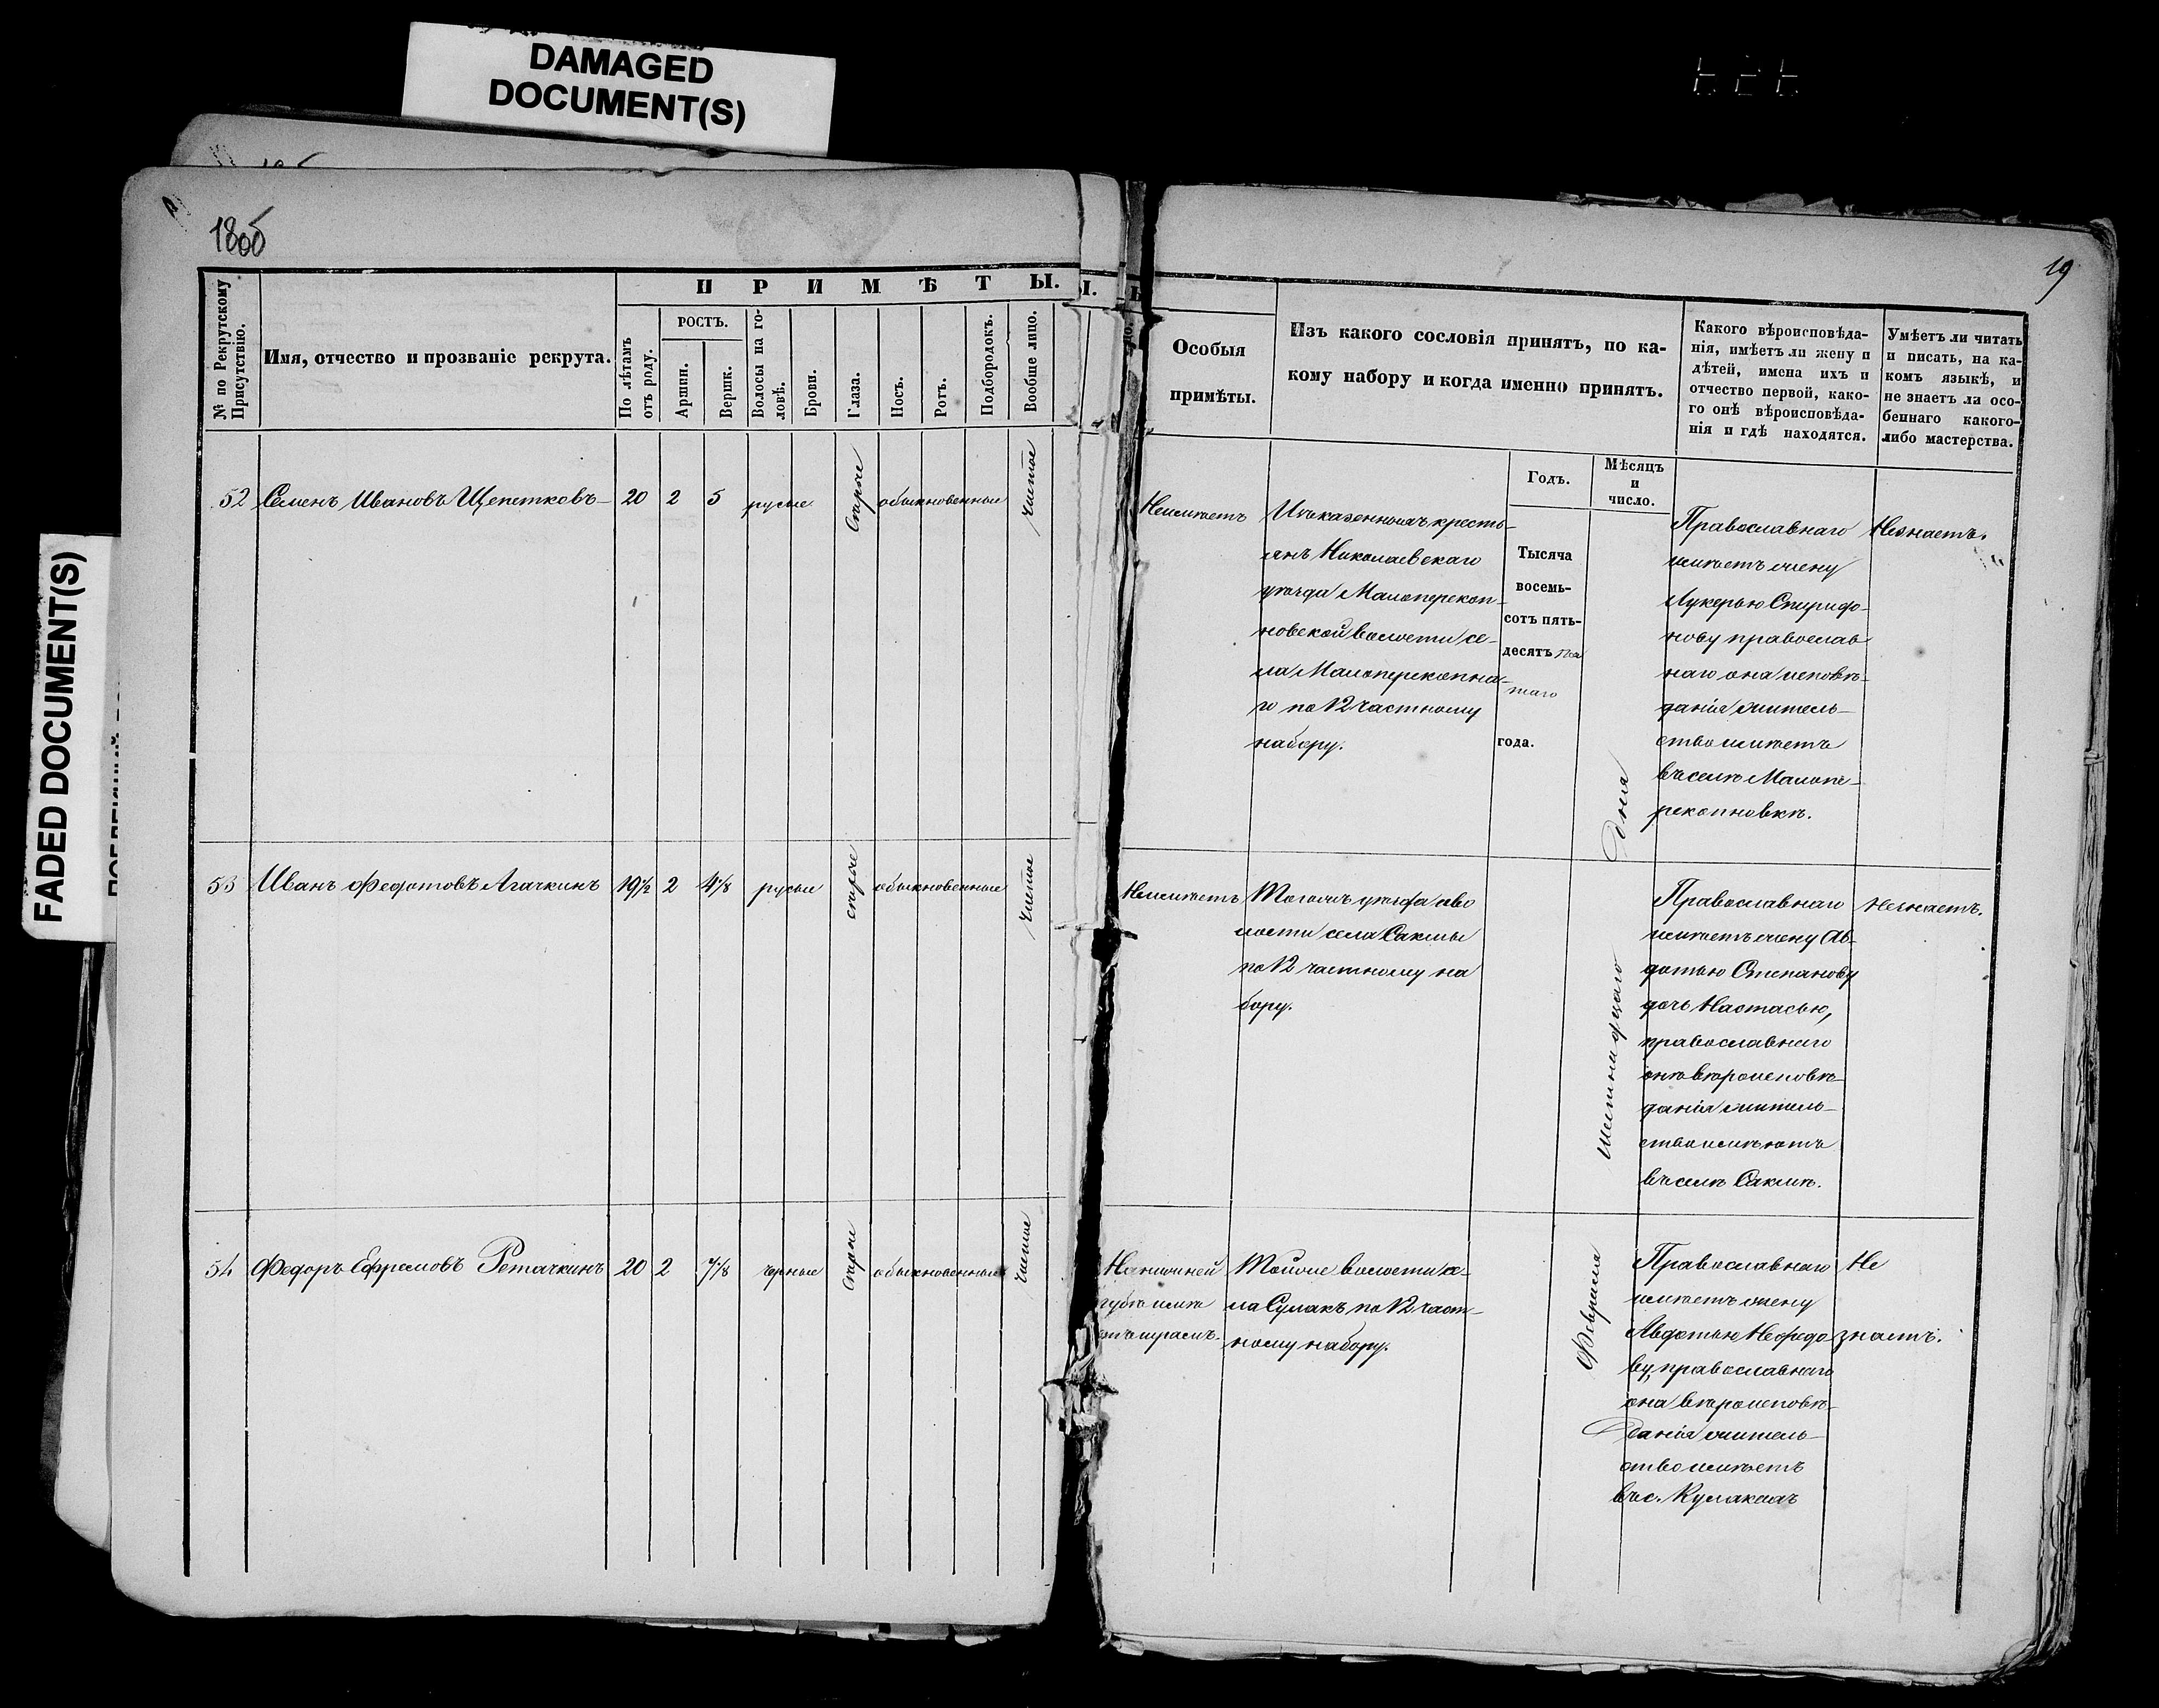 DAMAGED
DOCUMENT(S)
FADED DOCUMENT(S)
18об
19
П Р И М Ѣ Т Ы.
№ по Рекрутскому Присутствію.
Имя, отчество и прозваніе рекрута.
По лѣтамъ отъ роду.
РОСТЪ.
Аршин.
Вершк.
Волосы на головѣ.
Брови.
Глаза.
Носъ.
Ротъ.
Подбородокъ.
Вообще лицо.
Особыя
примѣты.
Изъ какого сословія принятъ, по ка-
кому набору и когда именно принятъ.
Какого вѣроисповѣда-
нія, имѣетъ ли жену и
дѣтей, имена ихъ и
отчество первой, како-
го онѣ вѣроисповѣда-
нія и гдѣ находятся.
Умѣетъ ли читать
и писать, на ка-
комъ языкѣ, и
не знаетъ ли осо-
беннаго какого-
либо мастерства.
Годъ.
Мѣсяцъ
и
число.
52 Семенъ Ивановъ Щепетковъ 20 2 5 русые Серые обыкновенные чистое
Неимѣетъ
Изъ казенныхъ кресть-
янъ Николаевскаго
уѣзда Малоперекоп-
новской волости се-
ла Малоперекопна-
го по 12 частному
набору.
Тысяча
восемь-
сотъ пять-
десятъ пя
таго
года.
Февраля шестнадцаго дня
Православнаго
имѣетъ жену
Лукерью Спиридо-
нову православ
наго она исповѣ-
данія житель-
ство имѣетъ
въ селѣ Малопе-
рекопновкѣ.
Незнаетъ.
53 Иванъ Федотовъ Агачкинъ 19½ 2 4 1/8 русые серые обыкновенные чистое
Неимѣетъ
Тогожъ уѣзда и во
лости села Саклы
по 12 частному на
бору.
Православнаго
имѣетъ жену Ав-
дотью Степанову
дочь Настасью,
православнаго
онѣ вѣроисповѣ-
данія житель-
ство имѣютъ
въ селѣ Саклѣ.
Незнаетъ.
54 Федоръ Ефремовъ 20 2 черные Серые обыкновенные чистое
На нижней
губѣ имѣ
етъ шрамъ.
Тойже волости се-
ла Сулакъ по 12 част-
ному набору.
Православнаго
имѣетъ жену
Авдотью
ву, православнаго
она вѣроисповѣ-
данія житель-
ство имѣетъ
въ с.
Не
знаетъ.